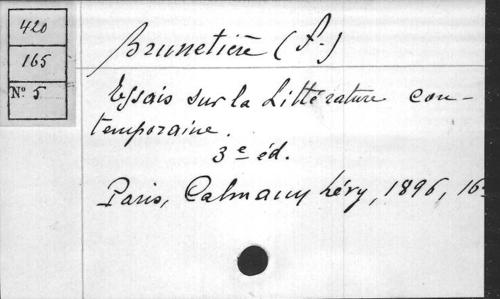 420
165
Nº 5
Brunetière (F.)
Essais sur la Littérature con-
temporaine.
3e éd.
Paris, Calmann Lévy, 1896, 16